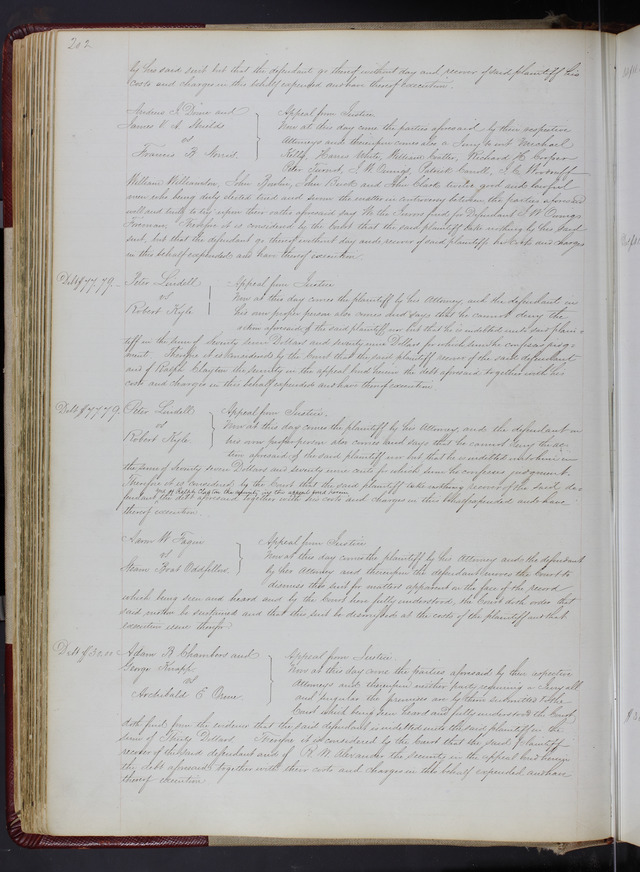 202
by his said suit but that the defendant go thereof without day and recover of said plaintiff his
costs and charges in this behalf expended and have thereof execution.
Andrew J Dowe and
James V A Shields
vs
Francis B Norris
Appeal from Justice
Now at this day come the parties aforesaid by their respective
Attorneys and thereupon comes also a Jury to wit Michael
Kelly, Harris White, William Cutter, Richard H Cooper
Peter Turnot, J W Cunnings, Patrick Carroll, J C Woodruff
William Williamson, John Barlow, John Burk and John Clark twelve good and lawful
men who being duly elected tried and sworn the matter in controversy between the parties aforesaid
well and truly to try upon their oaths aforesaid say We the Jurors find for Defendant J W Cunnings
Foreman. Therefore it is considered by the Court that the said plaintiff take nothing by his said
suit, but that the defendant go thereof without day and recover of said plaintiff his costs and charges
in this behalf expended and have thereof execution.
Debt $77.79
Peter Lindell
vs
Robert Kyle
Appeal from Justice
Now at this day comes the plaintiff by his Attorney and the defendant in
his own proper person also comes and says that he cannot deny the
action aforesaid of the said plaintiff nor but that he is indebted unto said plain-
tiff in the sum of Seventy Seven Dollars and seventy nine Dollars for which sum he confesses judg-
ment. Therefore it is considered by the Court that the said plaintiff recover of the said defendant
and of Ralph Clayton the security in the appeal bond herein the debt aforesaid together with his
costs and charges in this behalf expended and have thereof execution.
Debt $77.79
Peter Lindell
vs
Robert Kyle
Appeal from Justice.
Now at this day comes the plaintiff by his Attorney, and the defendant in
his own proper person also comes and says that he cannot deny the ac-
tion aforesaid of the said plaintiff nor but that he is indebted unto him in
the sum of Seventy seven Dollars and seventy nine cents for which sum he confesses judgment.
Therefore it is considered by the Court that the said plaintiff take nothing recover of the said de-
and of Ralph Clayton the security in the appeal bond herein
fendant the debt aforesaid together with his costs and charges in this behalf expended and have
thereof execution.
Adam W Fagin
vs
Steam Boat Oddfellow
Appeal from Justice
Now at this day comes the plaintiff by his Attorney and the defendant
by his Attorney and thereupon the defendant moves the Court to
dismiss this suit for matters apparent on the face of the record
which being seen and heard and by the Court here fully understood, the Court doth order that
said motion be sustained and that this suit be dismissed at the costs of the plaintiff and that
execution issue therefor.
Debt $30.00
Adam B Chambers and
George Knapp
vs
Archibald E Orme
Appeal from Justice.
Now at this day come the parties aforesaid by their respective
Attorneys and thereupon neither party requiring a Jury all
and singular the premises are by them submitted to the
Court which being seen heard and fully understood the Court
doth find from the evidence that the said defendant is indebted unto the said plaintiff in the
sum of Thirty Dollars. Therefore it is considered by the Court that the said Plaintiff
recover of the said defendant and of R W Alexander the Security in the appeal bond herein
the debt aforesaid together with their costs and charges in this behalf expended and have
thereof execution